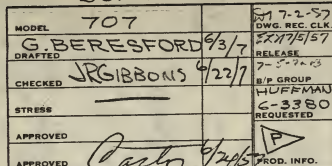 MODEL 707
G. BERESFORD 6/3/7
DRAFTED
CHECKED JRGIBBONS 6/22/7
STRESS
APPROVED
APPROVED 6/24/57
7-2-57
DWG. REC. CLK.
7/5/57
RELEASE
B/P GROUP
HUFFMAN
6-3380
REQUESTED
P
PROD. INFO.